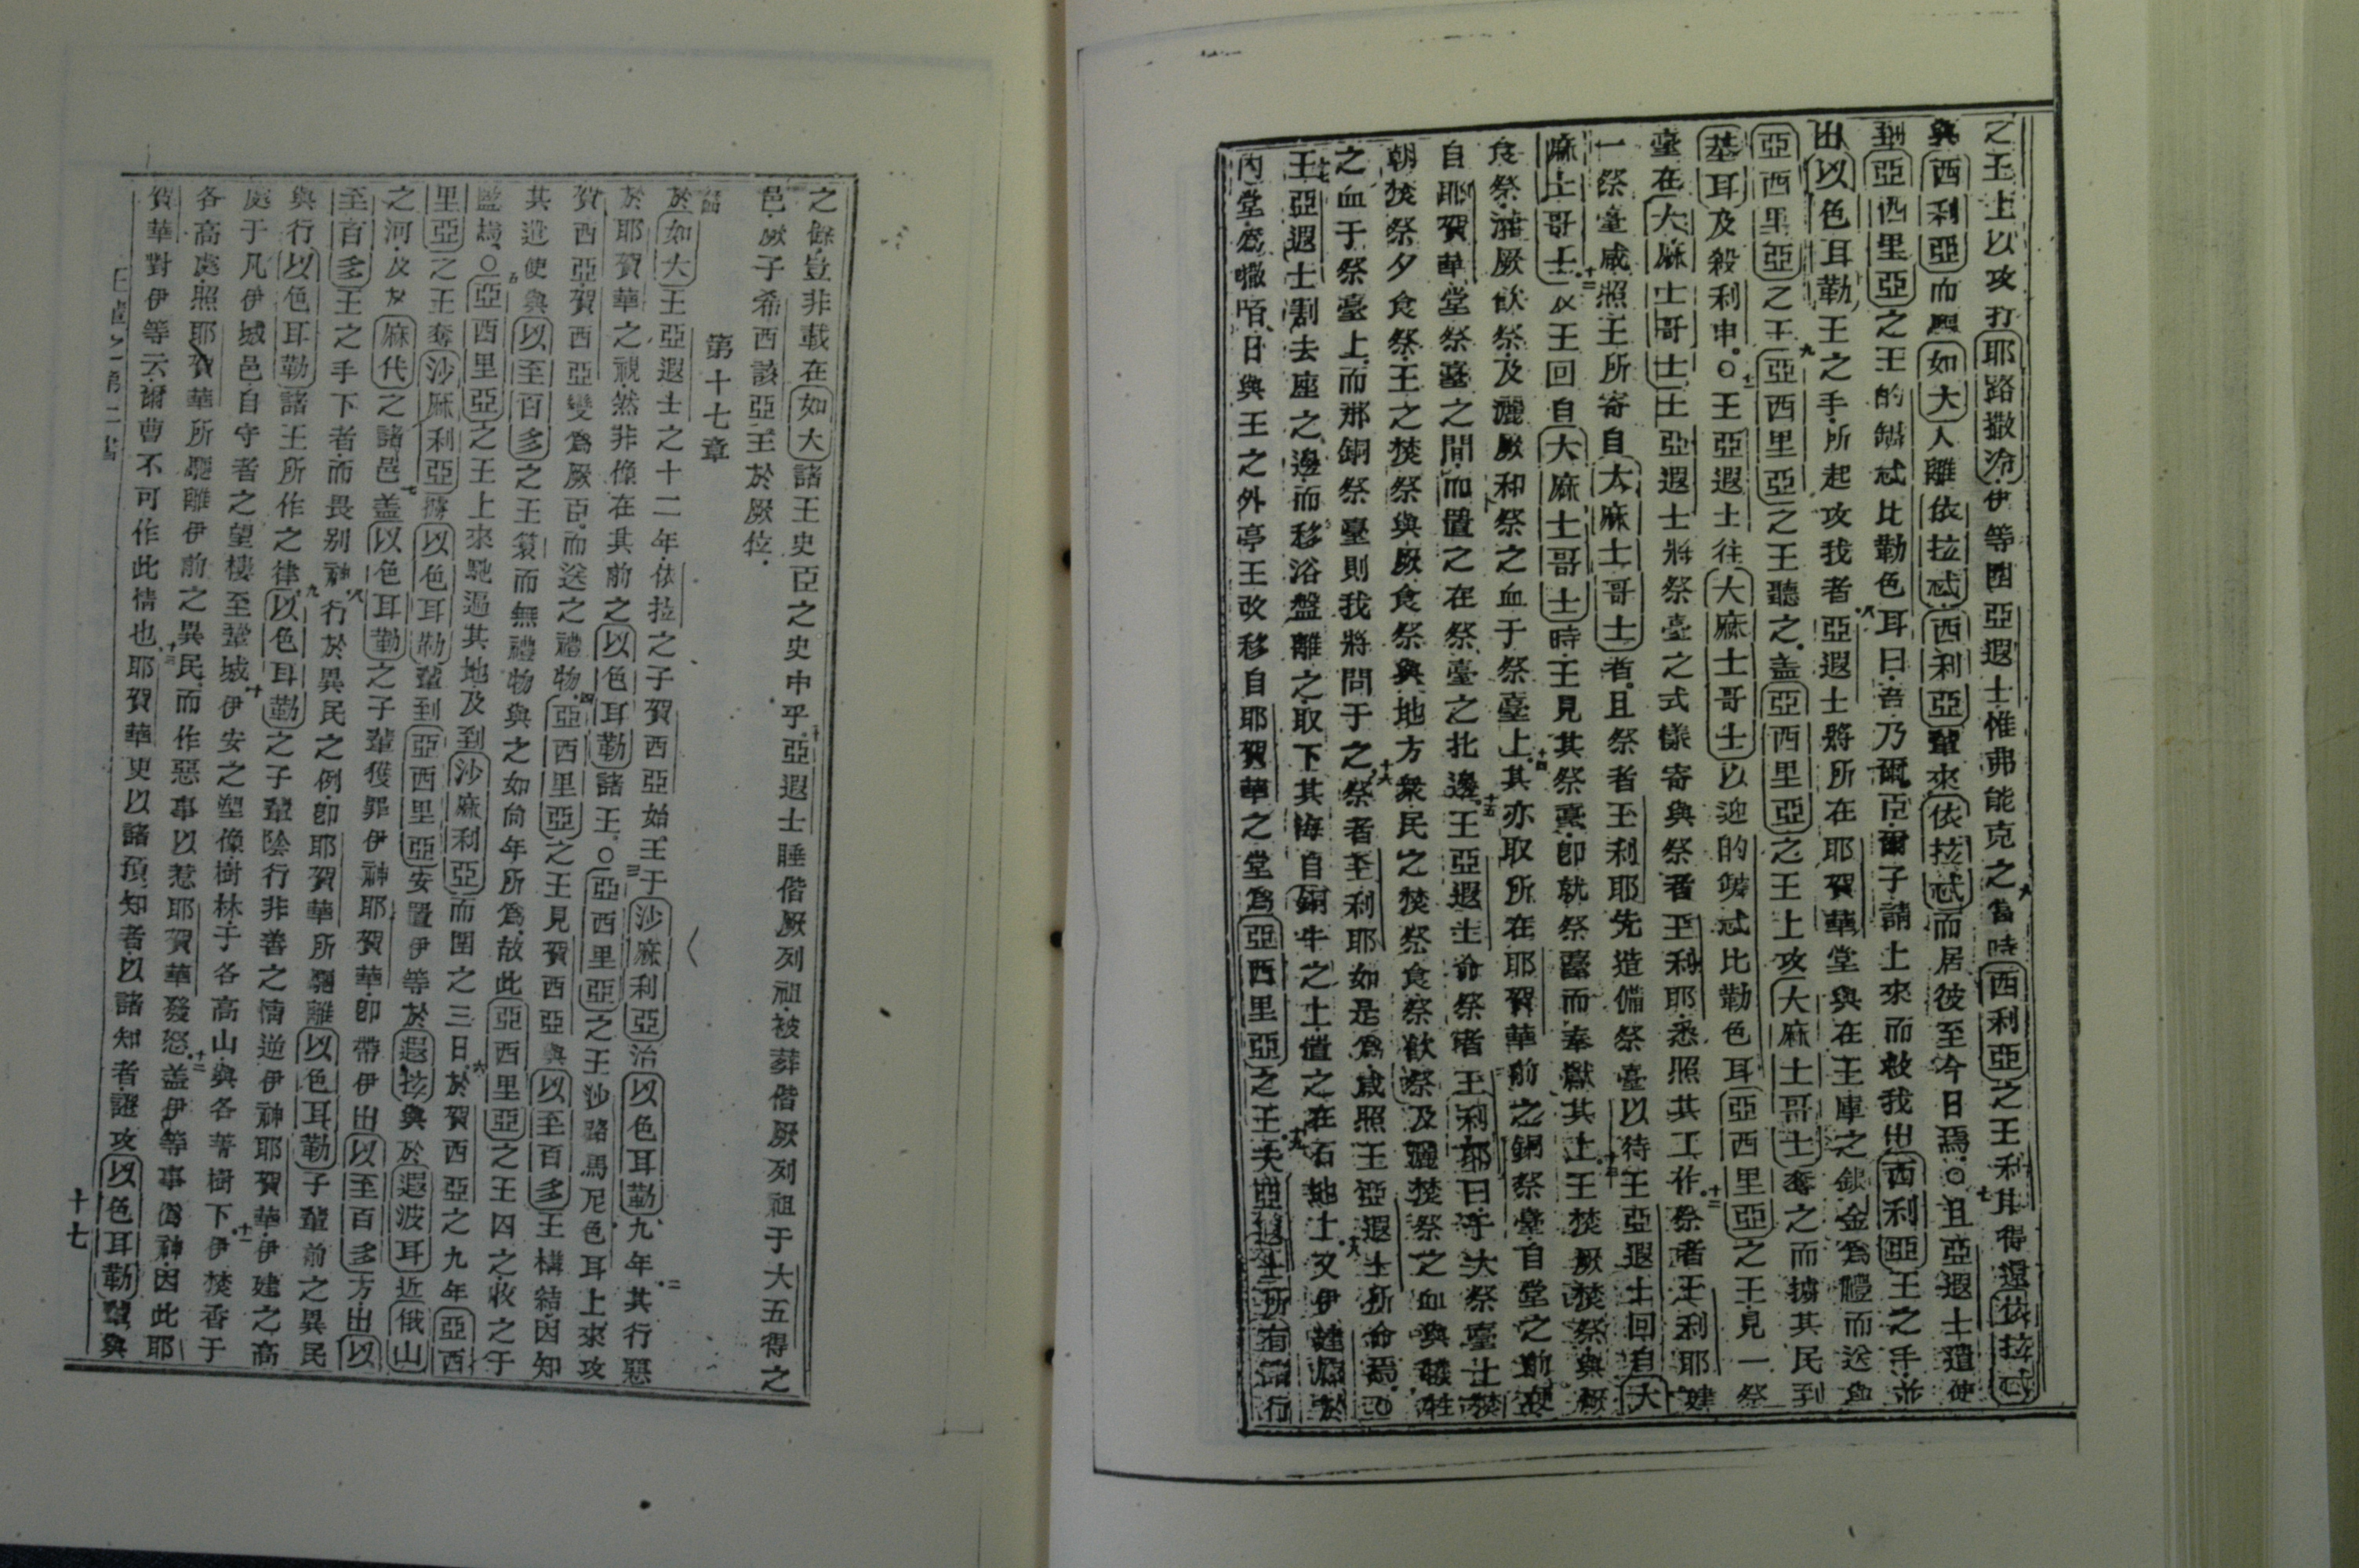 之王上以攻打耶路撒冷伊等圍亞遐士惟弗能克之六當時西利亞之王利其得還依拉忒
與西利亞而驅如大人離依拉忒西利亞輩來依拉忒而居彼至今日焉○七且亞遐士遣使
到亞西里亞之王的鏪忒比勒色耳曰吾乃爾臣爾子請上來而救我出西利亞王之手並
出以色耳勒王之手所起攻我者八亞遐士將所在耶賀華堂與在王庫之銀金為禮而送與
亞西里亞之王九亞西里亞之王聽之蓋亞西里亞之王上攻大麻士哥士奪之而擄其民到
基耳及殺利申○十王亞遐士往大麻士哥士以迎的鏪忒比勒色耳亞西里亞之王見一祭
臺在大麻士哥士王亞遐士將祭臺之式樣寄與祭者王利耶悉照其工作十一祭者王利耶建
一祭臺咸照王所寄自大麻士哥士者且祭者王利耶先造備祭臺以待王亞遐士回自大
麻士哥士十二及王回自大麻士哥士時王見其祭臺即就祭臺而奉獻其上十三王焚厥焚祭與厥
食祭灌厥飲祭及灑厥和祭之血于祭臺上十四其亦取所在耶賀華前之銅祭臺自堂之前
自耶賀華堂祭臺之間而置之在祭臺之北邊十五王亞遐士命祭者王利耶曰于大祭臺上焚
朝焚祭夕食祭王之焚祭與厥食祭與地方眾民之焚祭食祭飲祭及灑焚祭之血與犧牲
之血于祭臺上而那銅祭臺則我將問于之十六祭者王利耶如是為咸照王亞遐士所命焉○
王亞遐士割去座之邊而移浴盤離之取下其海自銅牛之上置之在石地上十八又伊建
內堂為嘁咟日與王之外亭王改移自耶賀華之堂為亞西里亞之王十九夫亞遐士所有諸行
之餘豈非載在如大諸王史臣之史中乎二十亞遐士睡偕厥列祖被葬偕厥列祖于大五得之
邑厥子希西該亞王於厥位
第十七章
一節於如大王亞遐士之十二年依拉之子賀西亞始王于沙麻利亞治以色耳勒九年二其行惡
於耶賀華之視然非像在其前之以色耳勒諸王○三亞西里亞之王沙路馬尼色耳上來攻
賀西亞賀西亞變為厥臣而送之禮物四亞西里亞之王見賀西亞與以至百多王構結因知
其遣使與以至百多之王籨而無禮物與之如向年所為故此亞西里亞之王囚之收之于
監焉○五亞西里亞之王上來馳遍其地及到沙麻利亞而圍之三日六於賀西亞之九年亞西
里亞之王奪沙麻利亞擄以色耳勒輩到亞西里亞安置伊等於遐拉與於遐波耳近俄山
之河及及麻代之諸邑七蓋以色耳勒之子輩獲罪伊神耶賀華即帶伊出以至百多方出以
至百多王之手下者而畏别神八行於異民之例即耶賀華所驅離以色耳勒子輩前之異民
與行以色耳勒諸王所作之律九以色耳勒之子輩陰行非善之情逆伊神耶賀華伊建之高
處于凡伊城邑自守者之望樓至鞏城十伊安之塑像樹林于各高山與各菁樹下十一伊焚香于
各高處照耶賀華所驅離伊前之異民而作惡事以惹耶賀華發怒十二蓋伊等事偽神因此耶
賀華對伊等云爾曹不可作此情也十三耶賀華更以諸預知者以諸知者證攻以色耳勒輩與
十七